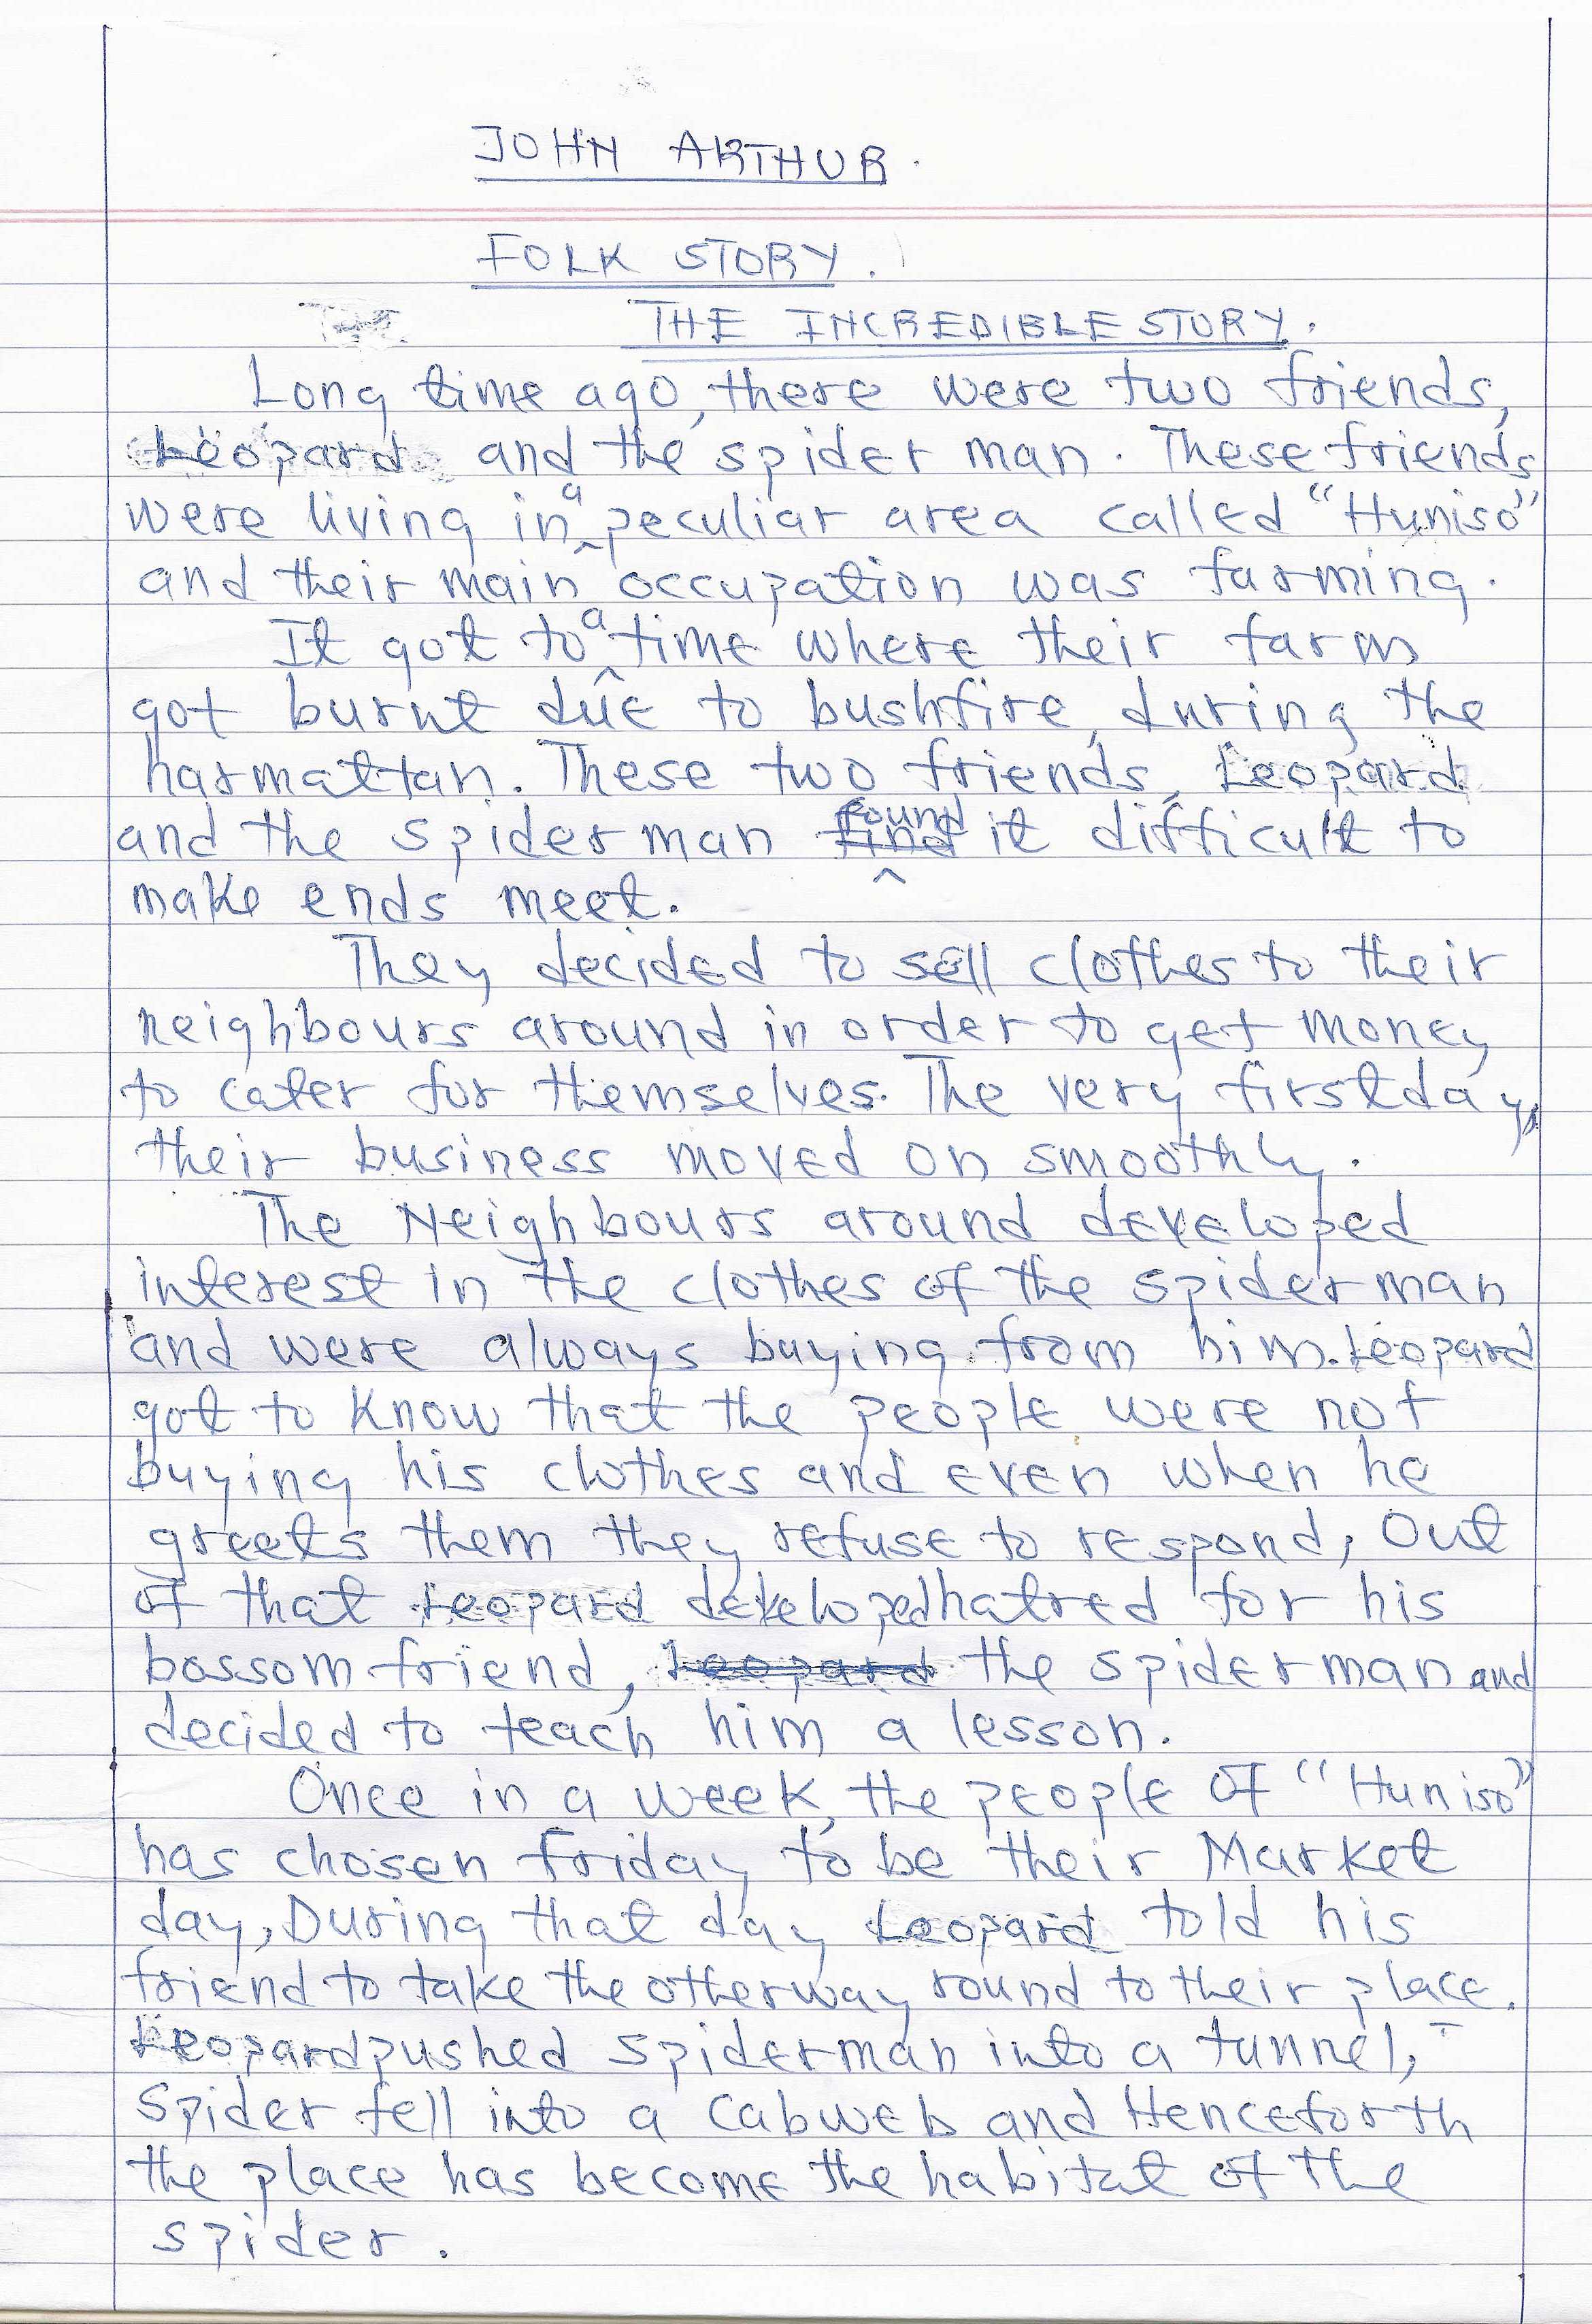 JOHN ARTHUR.
FOLK STORY.
THE INCREDIBLE STORY.
Long time ago, there were two friends,
Leopard and the spider man. These friends
were living in a peculiar area called "Huniso"
and their main occupation was farming.
It got to a time where their farm
got burnt due to bushfire, during the
harmattan. These two friends, Leopard
and the spider man found it difficult to
make ends meet.
They decided to sell clothes to their
neighbours around in order to get money
to cater for themselves. The very first day,
their business moved on smoothly.
The Neighbours around developed
interest in the clothes of the spider man
and were always buying from him. Leopard
got to know that the people were not
buying his clothes and even when he
greets them they refuse to respond, Out
of that Leopard developed hatred for his
bossom friend, the spider man and
decided to teach him a lesson.
Once in a week, the people of "Huniso"
has chosen friday to be their Market
day, During that day Leopard told his
friend to take the otherway round to their place.
Leopard pushed spiderman into a tunnel,
Spider fell into a cabweb and Henceforth
the place has become the habitat of the
spider.